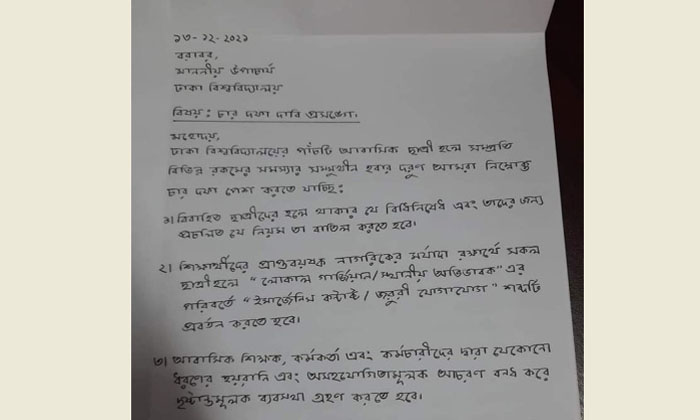 ১৩-১২-২০২১
বরাবর,
মাননীয় উপাচার্য
ঢাকা বিশ্ববিদ্যালয়
বিষয় : চার দফা দাবি প্রসঙ্গে।
মহোদয়,
ঢাকা বিশ্ববিদ্যালয়ের পাঁচটি আবাসিক ছাত্রী হলে সম্প্রতি
বিভিন্ন রকমের সমস্যার সম্মুখীন হবার দরুণ আমরা নিম্নোক্ত
চার দফা পেশ করতে যাচ্ছি :
১। বিবাহিত ছাত্রীদের হলে থাকার যে বিধিনিষেধ এবং তাদের জন্য
প্রচলিত যে নিয়ম তা বাতিল করতে হবে।
২। শিক্ষার্থীদের প্রাপ্তবয়স্ক নাগরিকের মর্যাদা রক্ষার্থে সকল
ছাত্রীহলে "লোকাল গার্ডিয়ান/স্থানীয় অভিভাবক" এর
পরিবর্তে "ইমার্জেন্সি কন্টাক্ট / জরুরী যোগাযোগ" শব্দটি
প্রবর্তন করতে হবে।
৩। আবাসিক শিক্ষক, কর্মকর্তা এবং কর্মচারীদের দ্বারা যেকোনো
ধরণের হয়রানি এবং অসহযোগিতামূলক আচরণ বন্ধ করে
দৃষ্টান্তমূলক ব্যবস্থা গ্রহণ করতে হবে।